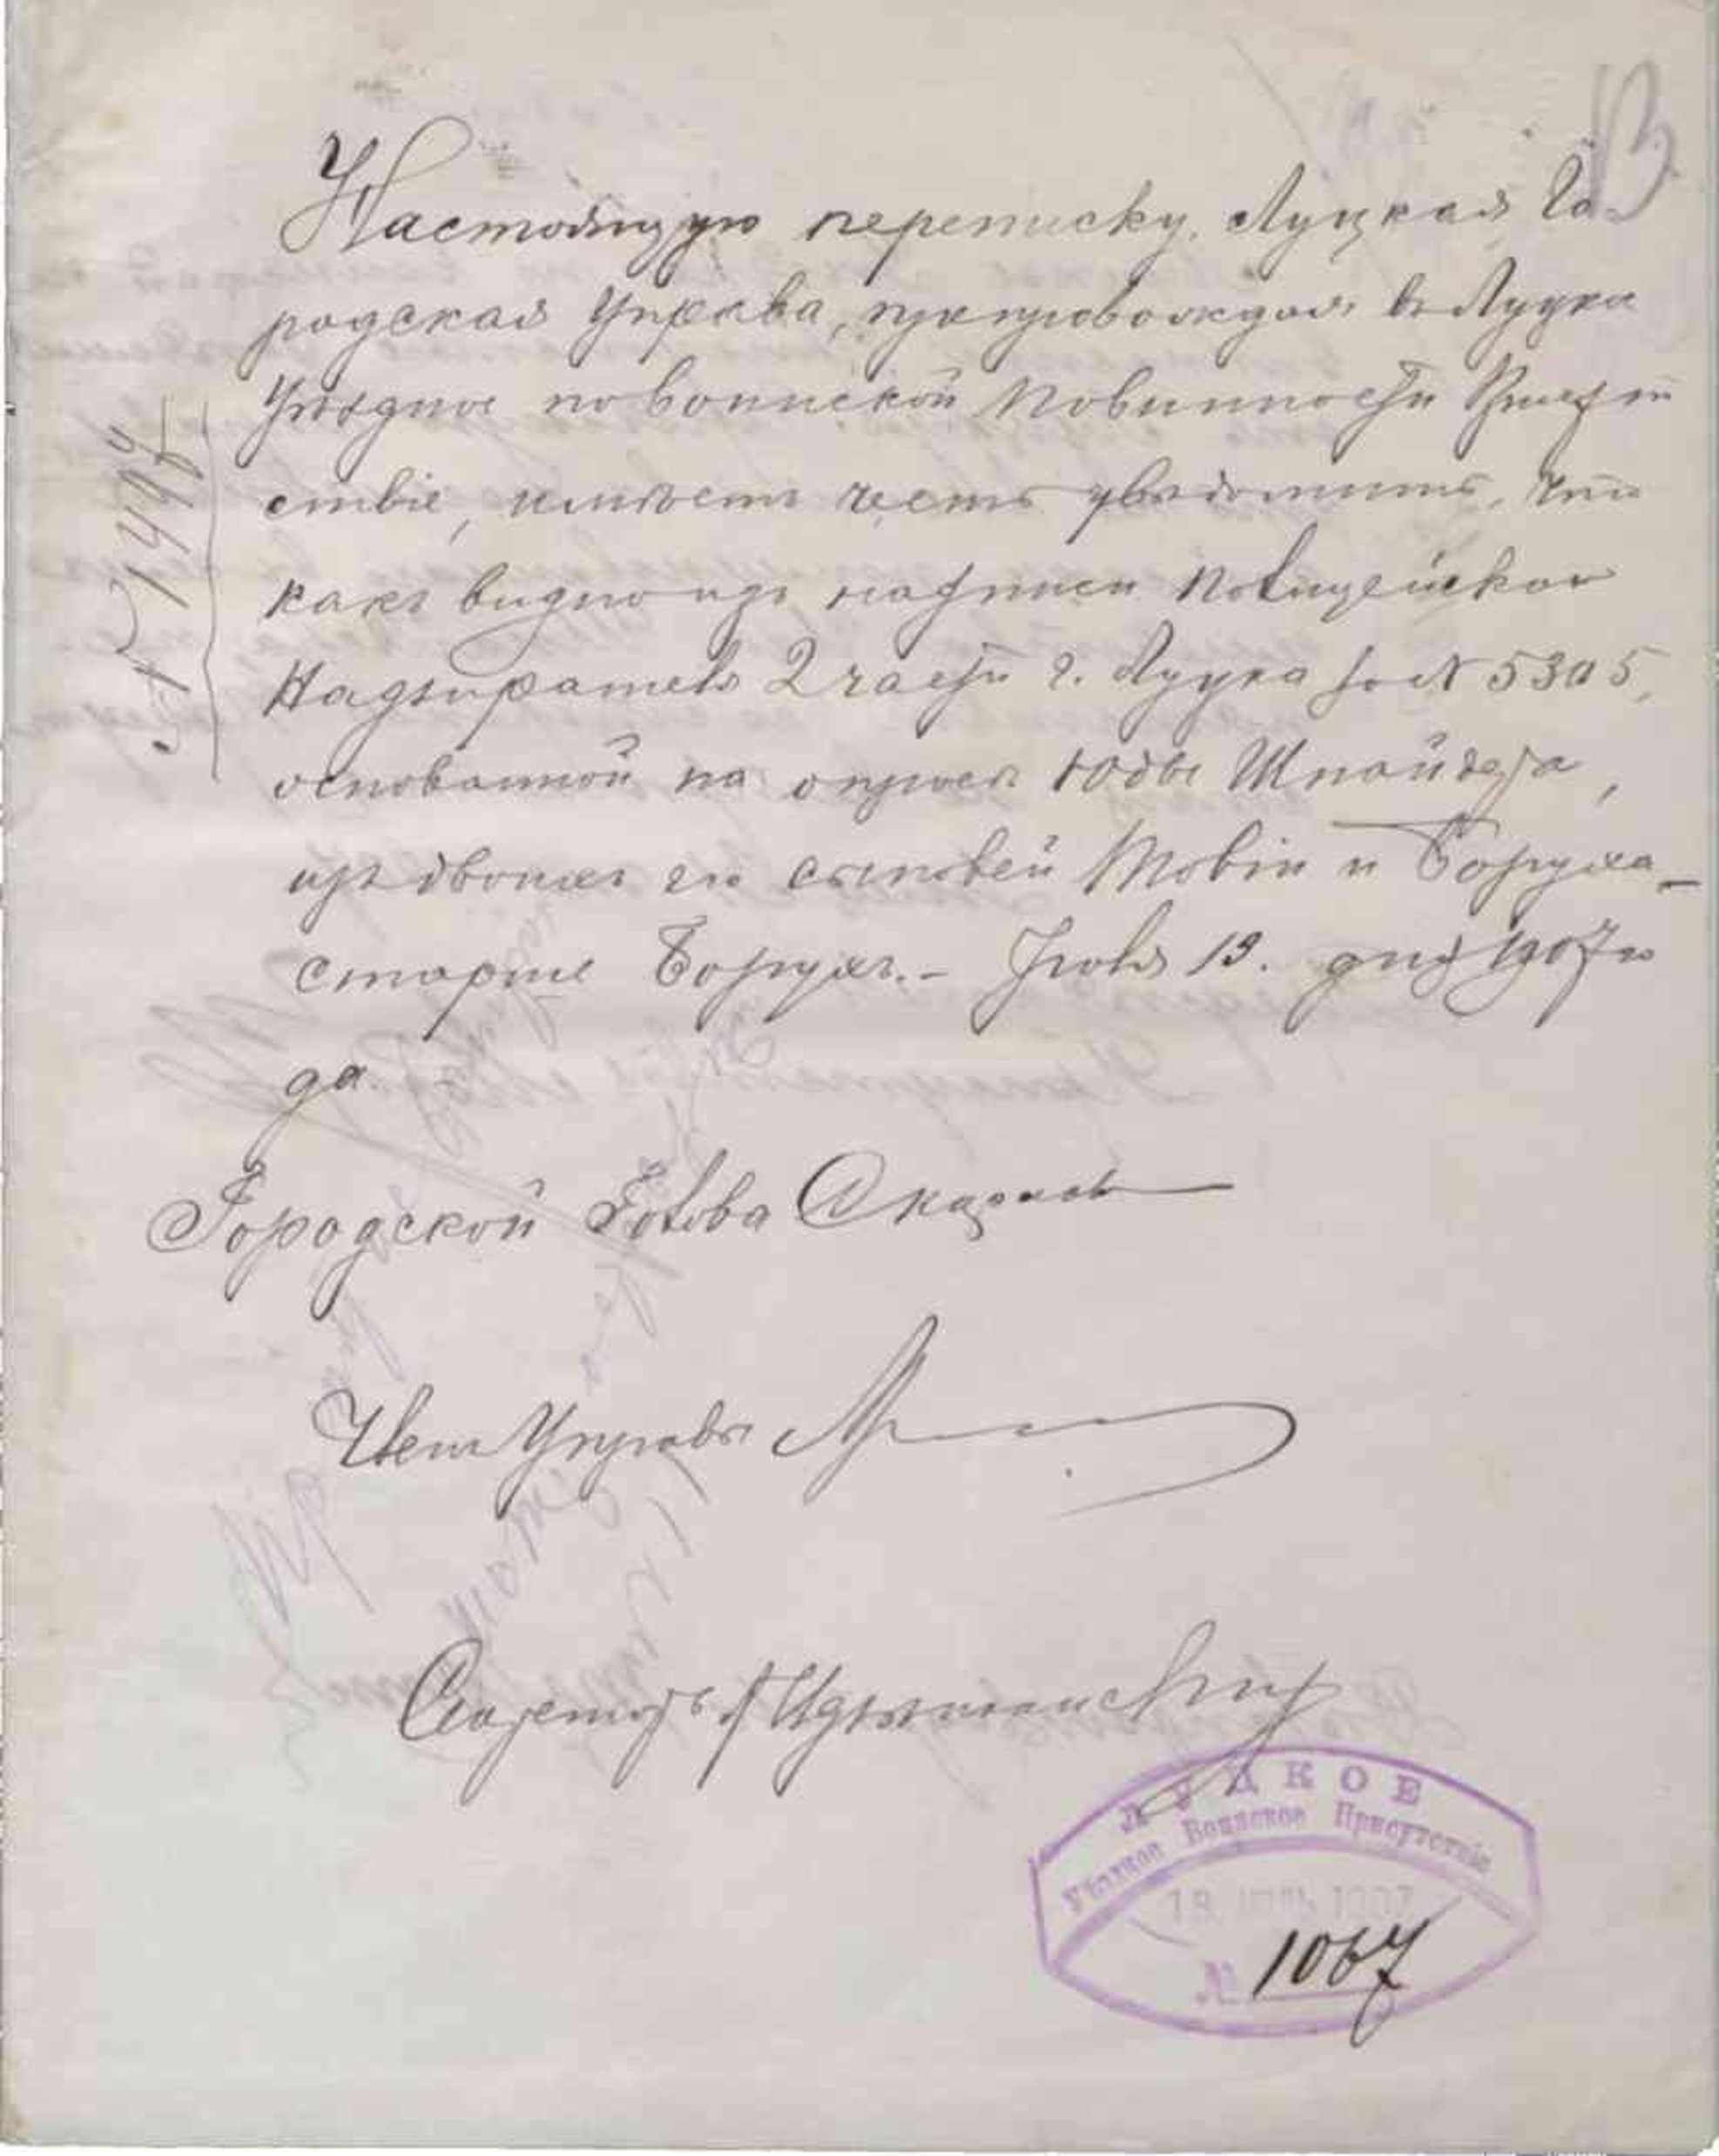 13
Настоящую переписку, Луцкая Го-
родская Управа, препровождая въ Луцкое
Уѣздное по воинской Повинности Присут
ствіе, имѣетъ честь увѣдомить, что
какъ видно изъ надписи Полицейскаго
Надзирателя 2 части г. Луцка за № 5305,
основанной на опросѣ Юды Шнайдера,
изъ двоихъ его сыновей Товіи и Боруха –
старше Борухъ. – Іюля 19. дня 1907 го
да.
№ 1497
Городской Голова
Членъ Управы
Секретарь
ЛУЦКОЕ
Уѣздное Воинское Присутствіе
19 ІЮЛЬ 1907
№ 1067